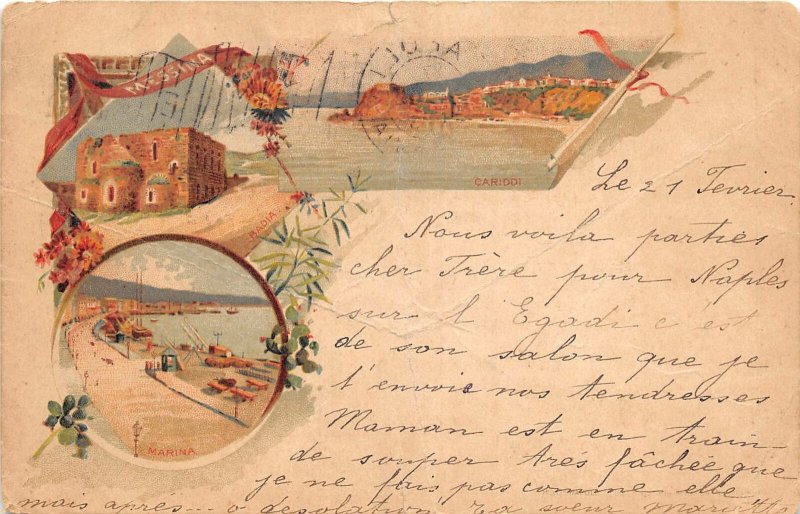 MESSINA
CARIDDI
BADIA
MARINA
Le 21 Fevrier
Nous voila parties
cher Frère pour Naples
sur l Egadi c est
de son salon que je
t'envoie nos tendresses
Maman est en train
de souper trés fâchée que
je ne fais pas comme elle
mais aprés... o desolation Ta soeur